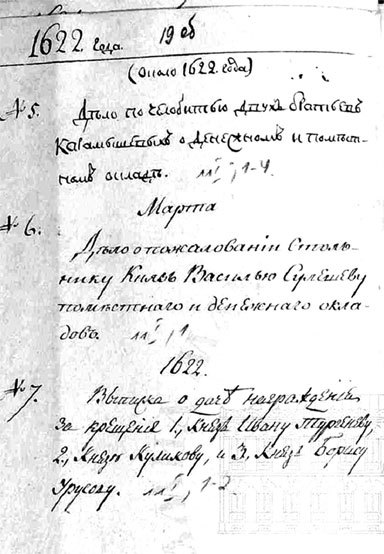 1622 года. 19 об
(Около 1622 года)
№ 5. Дѣло по челобитью двухъ братьевъ
Карамышевыхъ о денежномъ и помѣст-
номъ окладѣ. 1-4
Марта
№ 6.
Дѣло о пожалованіи Столь-
нику Князю Василью Сулешеву
помѣстнаго и денежнаго окла-
довъ. 1
1622.
№ 7. Выписка о дачѣ награжденія
за крещеніе 1, Князю Ивану
2, Князю Куликову, и 3, Князю Борису
Урусову. 1-2